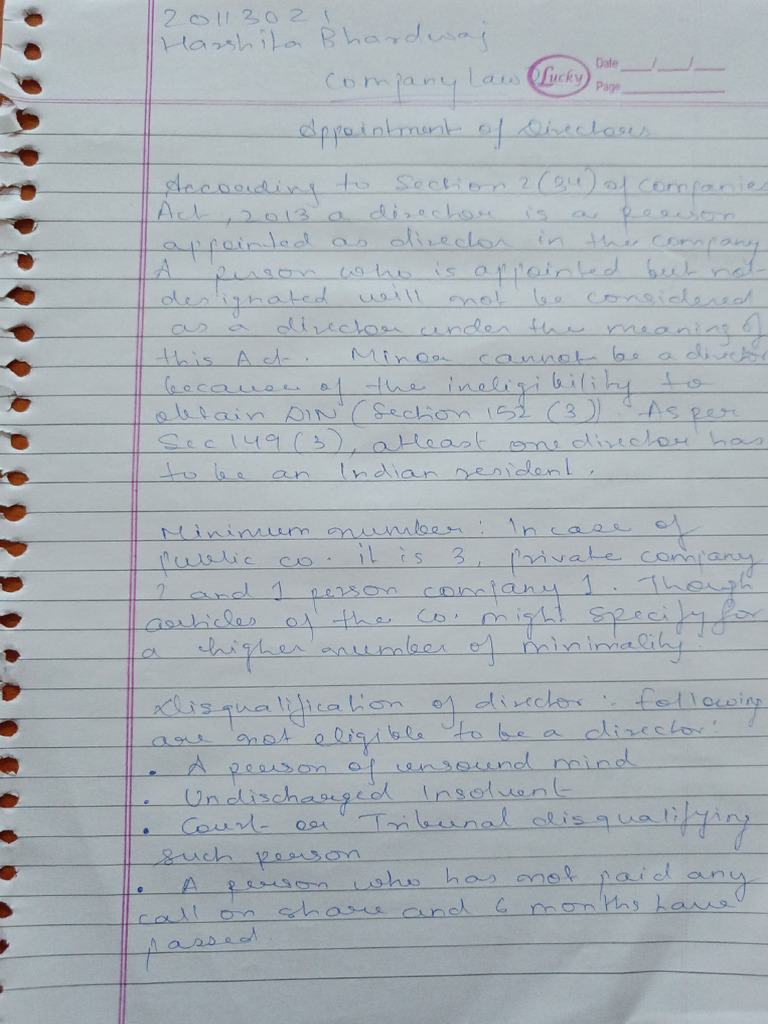 20113021
Harshita Bhardwaj
Company Law
Lucky
Date __/__/__
Page
Appointment of Directors
According to Section 2(34) of Companies
Act, 2013 a director is a person
appointed as director in the company
A person who is appointed but not
designated will not be considered
as a director under the meaning of
this Act. Minor cannot be a director
because of the ineligibility to
obtain DIN (Section 152 (3)). As per
Sec 149 (3), atleast one director has
to be an Indian resident.
Minimum number: In case of
public co. it is 3, private company
2 and 1 person company 1. Though
articles of the Co. might specify for
a higher number of minimality.
Disqualification of director: following
are not eligible to be a director:
• A person of unsound mind
• Undischarged Insolvent
• Court or Tribunal disqualifying
such person
• A person who has not paid any
call on share and 6 months have
passed.